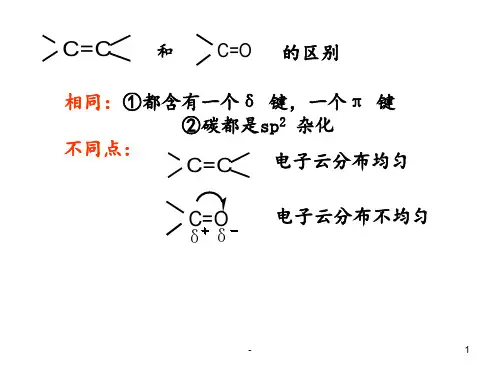 C=C 和 C=O 的区别
相同：①都含有一个δ 键，一个π 键
②碳都是sp² 杂化
不同点：
C=C 电子云分布均匀
C=O 电子云分布不均匀
δ+ δ-
- 1